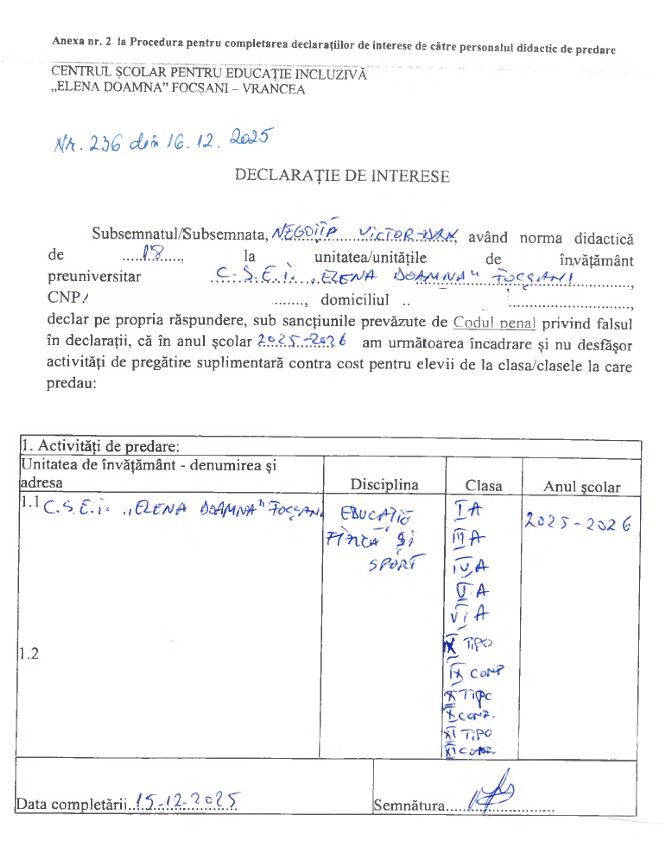 Anexa nr. 2 la Procedura pentru completarea declarațiilor de interese de către personalul didactic de predare
CENTRUL ȘCOLAR PENTRU EDUCAȚIE INCLUZIVĂ
„ELENA DOAMNA” FOCȘANI – VRANCEA
Nr. 236 din 16.12.2025
DECLARAȚIE DE INTERESE
Subsemnatul/Subsemnata, NEGOIȚĂ VICTOR-DAN, având norma didactică
de ....18...., la unitatea/unitățile de învățământ
preuniversitar C.S.E.I. „ELENA DOAMNA" FOCȘANI,
CNP/ ........, domiciliul .. ........,
declar pe propria răspundere, sub sancțiunile prevăzute de Codul penal privind falsul
în declarații, că în anul școlar 2025-2026 am următoarea încadrare și nu desfășor
activități de pregătire suplimentară contra cost pentru elevii de la clasa/clasele la care
predau:
1. Activități de predare:
Unitatea de învățământ - denumirea și
adresa Disciplina Clasa Anul școlar
1.1 C.S.E.I. „ELENA DOAMNA" FOCȘANI EDUCAȚIE I A 2025-2026
FIZICĂ ȘI III A
SPORT IV A
V A
VI A
1.2 IX TIPO
IX CONF
X TIPO
X CONF.
XI TIPO
XI CONF.
Data completării 15.12.2025 Semnătura